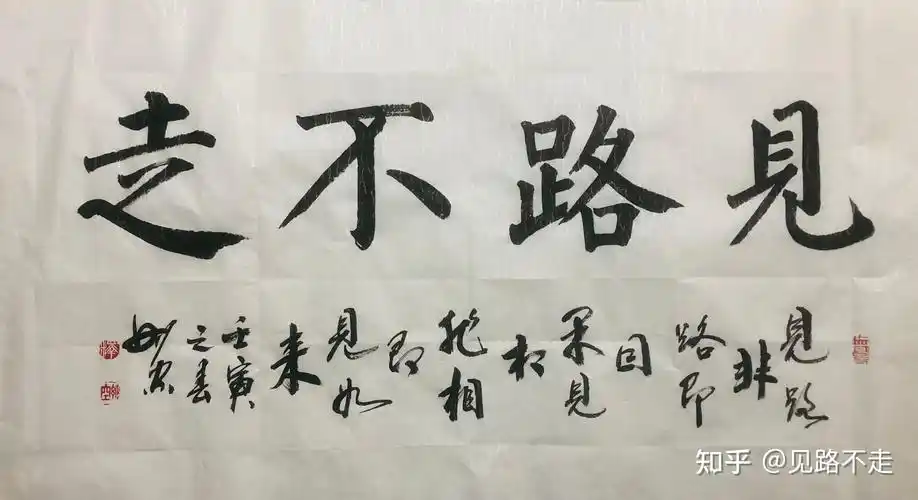 見路不走
見路
非
路即
因
果見
相
非相
即
見如
来
壬寅
之春
知乎 @见路不走